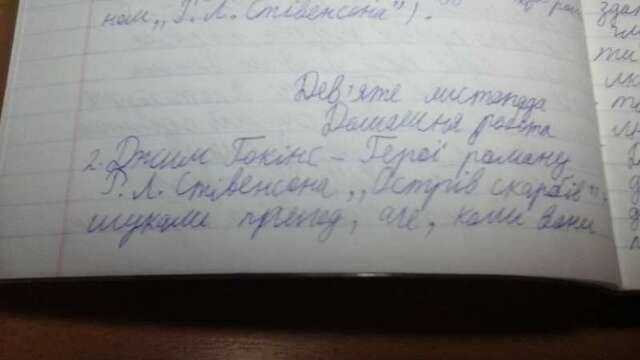 ном „Г. Л. Стівенсона").
Дев'яте листопада
Домашня робота
2. Джим Гокінс – Герої роману
Г. Л. Стівенсона „Острів скарбів",
шукали пригод, але, коли вони